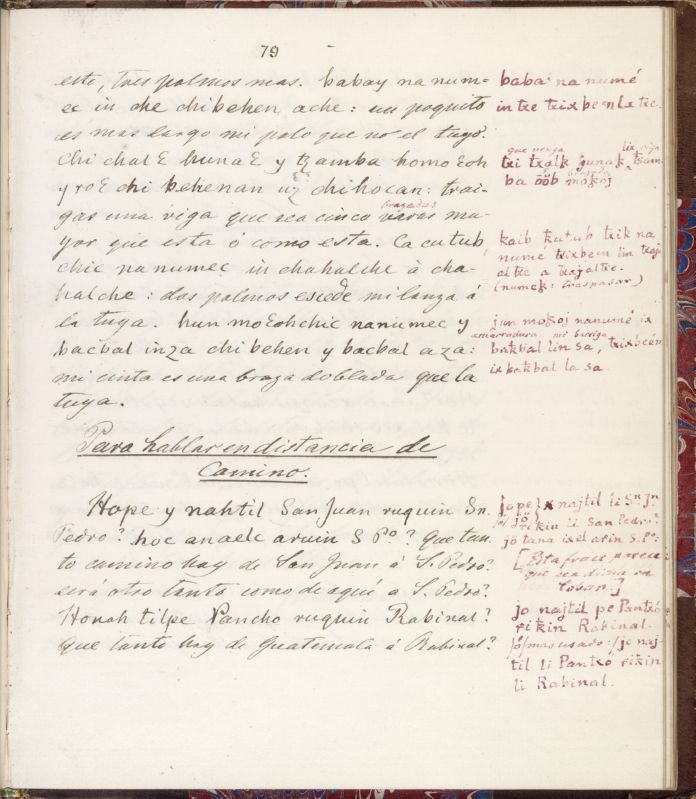 79
esto, tres palmos mas. babay na num=
ec in che chibehen ache: un poquito
es mas largo mi palo que no el tuyo.
Chi chalɛ hunaɛ y tzamba homoɛoh
y roɛ chi behenan uz chihocan: trai-
gas una viga que sea cinco varas ma-
brazadas
yor que esta ó como esta. Ca cutub
chic na numec in chahalche à cha-
halche: dos palmos escede mi lanza á
la tuya. hun moɛohchic nanumec y
bacbal inza chi behen y bacbal aza:
mi cinta es una braza doblada que la
tuya.
Para hablar en distancia de
Camino.
Hope y nahtil San Juan ruquin Sn.
Pedro? hoc anaele aruin S Po.? Que tan-
to camino hay de San Juan á S. Pedro?
será otro tanto como de aquí a S. Pedro?
Honah tilpe Pancho ruquin Rabinal?
Que tanto hay de Guatemala á Rabinal?
baba na numé
in tze tzixbeen la tze.
que venga
viga
tzi tzalk junak tzam-
ba öõb mokoj
kaib kutub tzik na
numé tzixbeen lin tzaj
al tze a tzajaltze.
(numek: traspasar)
jun mokoj nanumé ix
amarradura mi barriga
bakbal lin sa, tzixbeen
ix bakbal la sa.
jope najtil li Sn Jn.
rikin li San Pedro?
jö tana ixel arin S. Po:
[Esta frace parece
que sea dicha en
Coban.]
jo najtil pe Pantxó
rikin Rabinal.
mas usado: jo naj-
til li Pantxó rikin
li Rabinal.